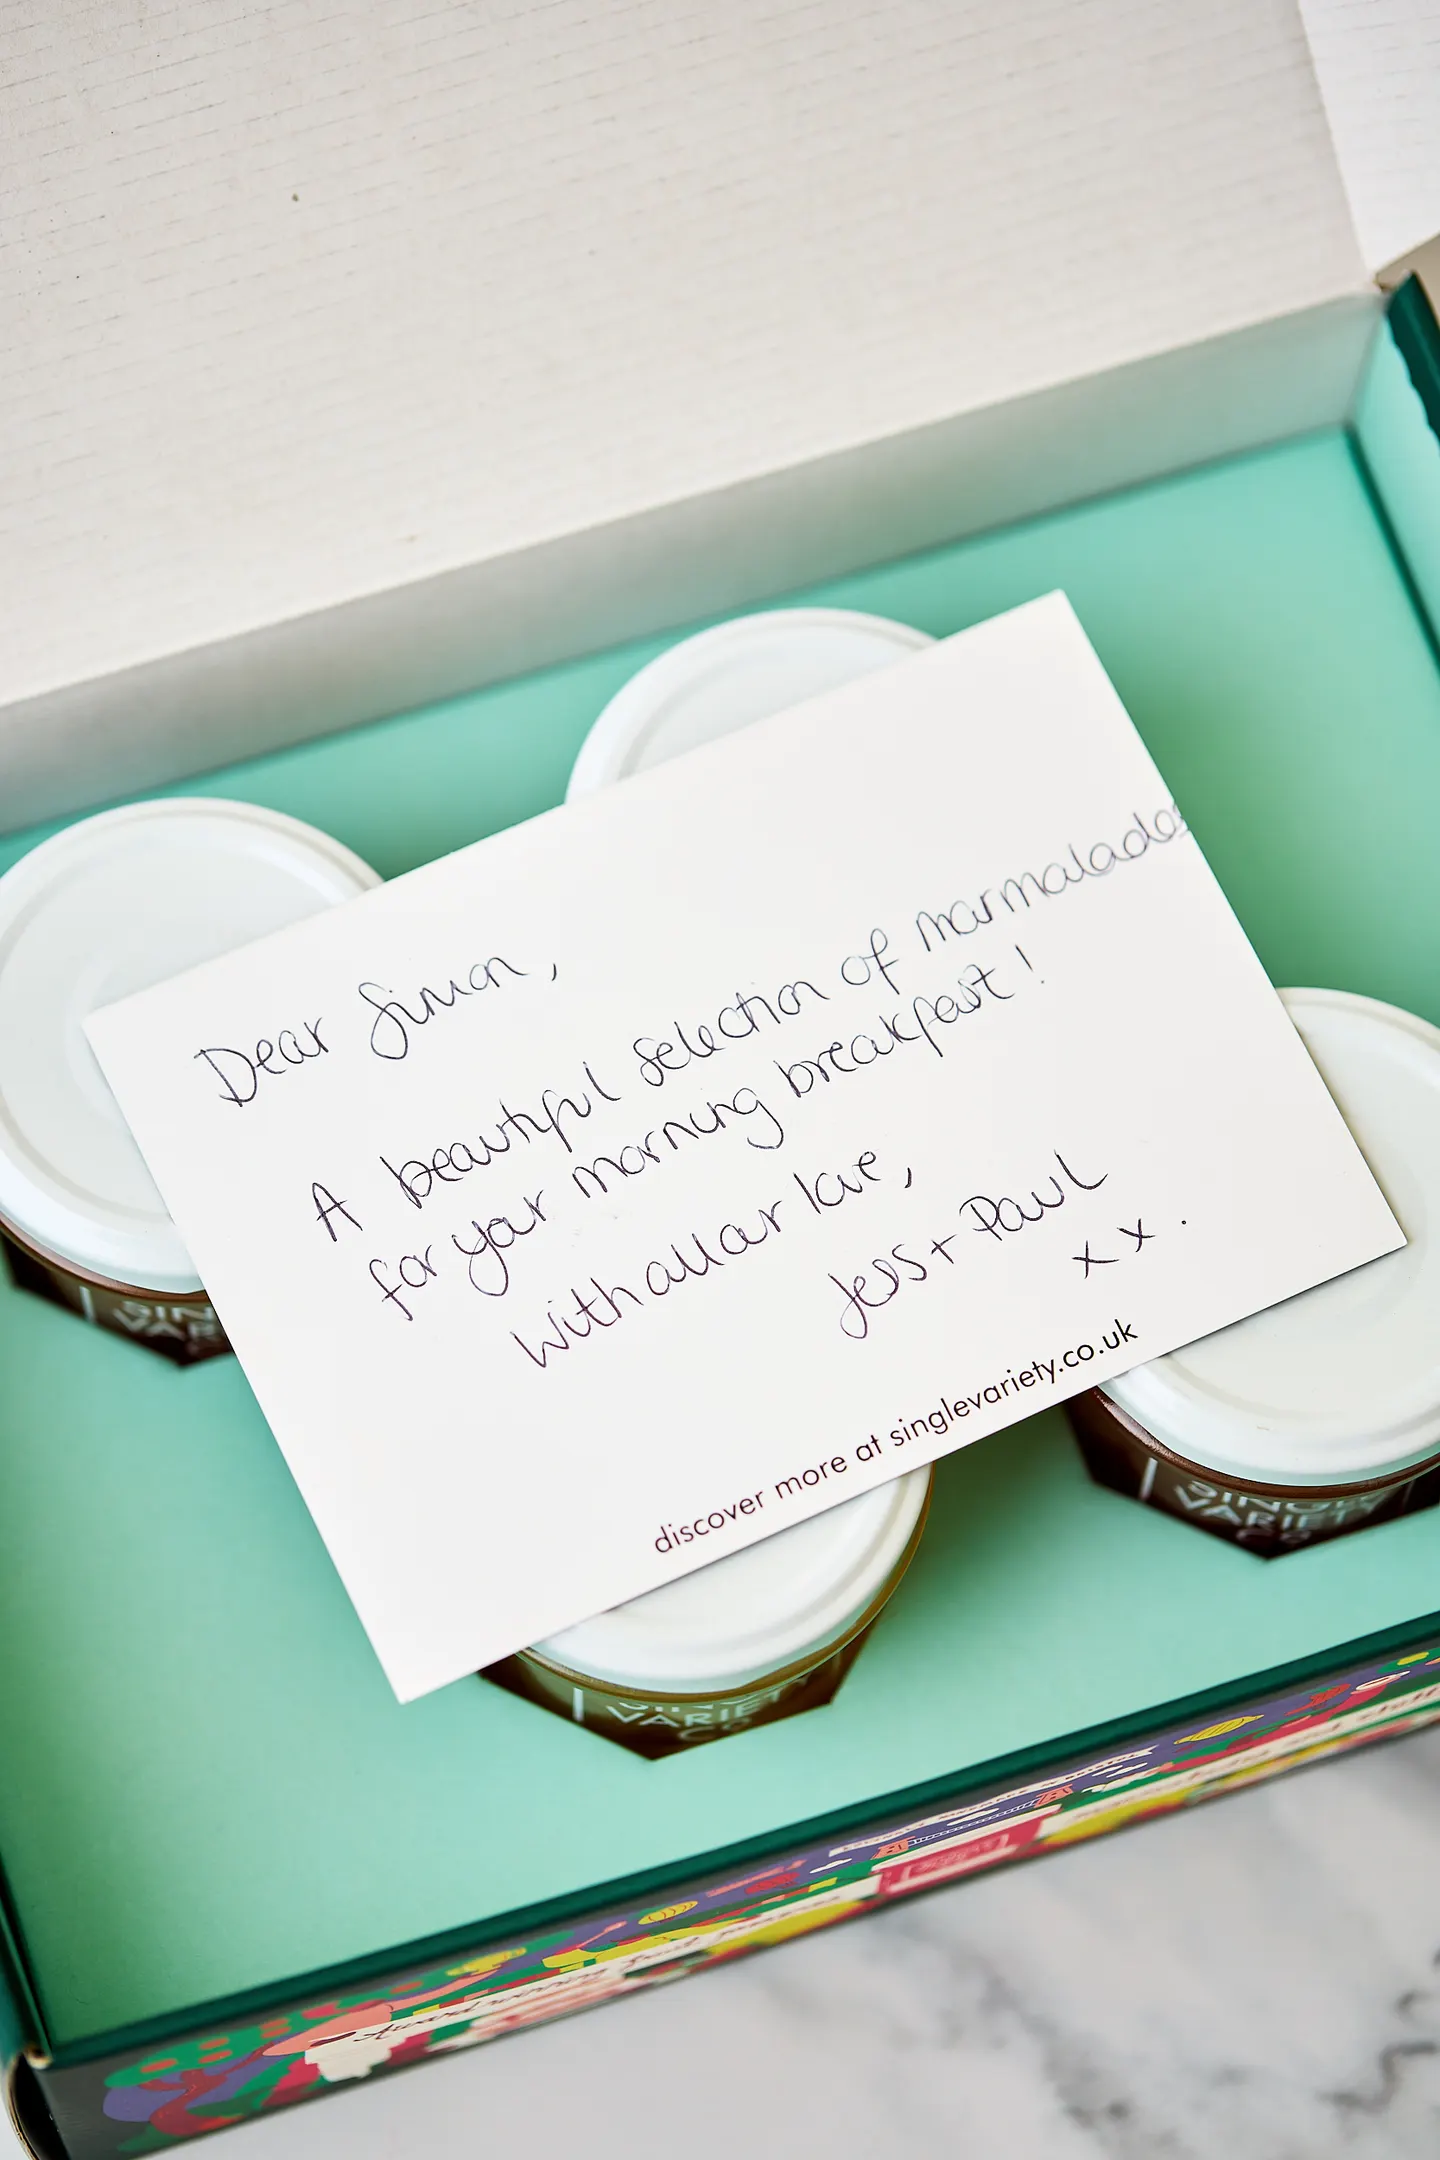 Dear Simon,
A beautiful selection of marmalades
for your morning breakfast!
With all our love,
Jess + Paul
x x .
discover more at singlevariety.co.uk
SIN
VAR
SINGLE
VARIETY
Co
VARIETY
Co
Award winning fruit preserves